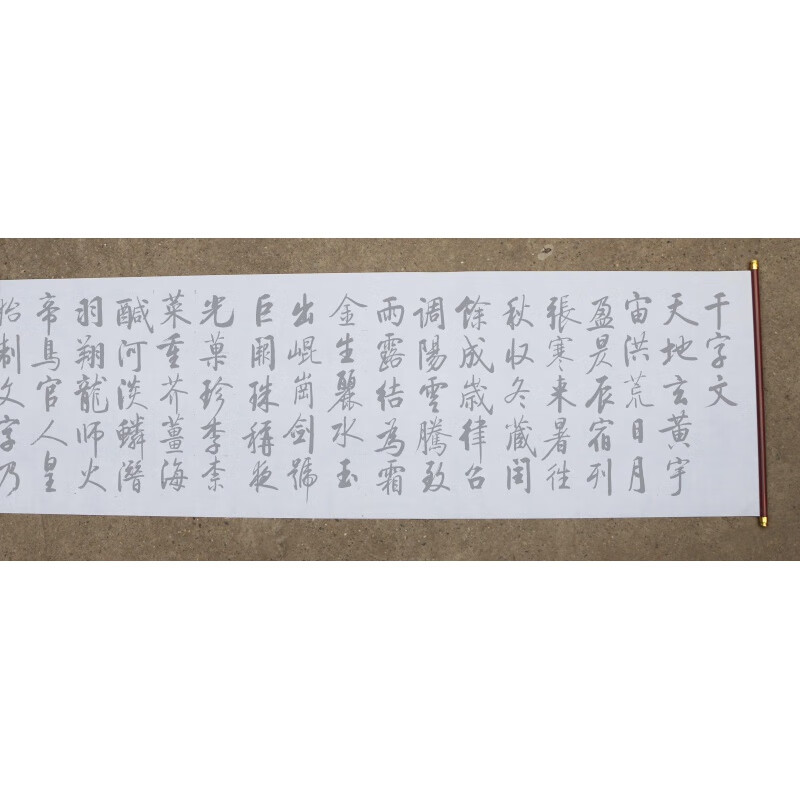 千字文
天地玄黃宇
宙洪荒日月
盈昃辰宿列
張寒来暑往
秋收冬藏閏
餘成歲律召
调陽雲騰致
雨露結為霜
金生麗水玉
出崐崗劍號
巨闕珠稱夜
光菓珍李柰
菜重芥薑海
醎河淡鱗潛
羽翔龍師火
帝鳥官人皇
始制文字乃